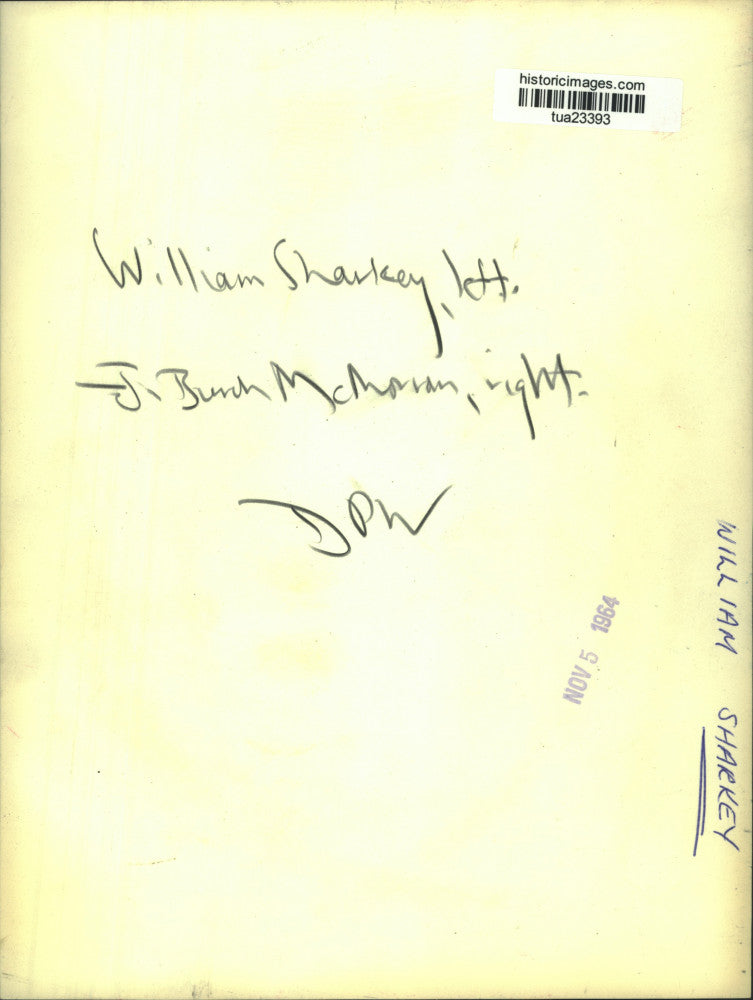 historicimages.com
tua23393
William Sharkey, left.
J. Burch McMorran, right.
DPW
NOV 5 1964
WILLIAM SHARKEY